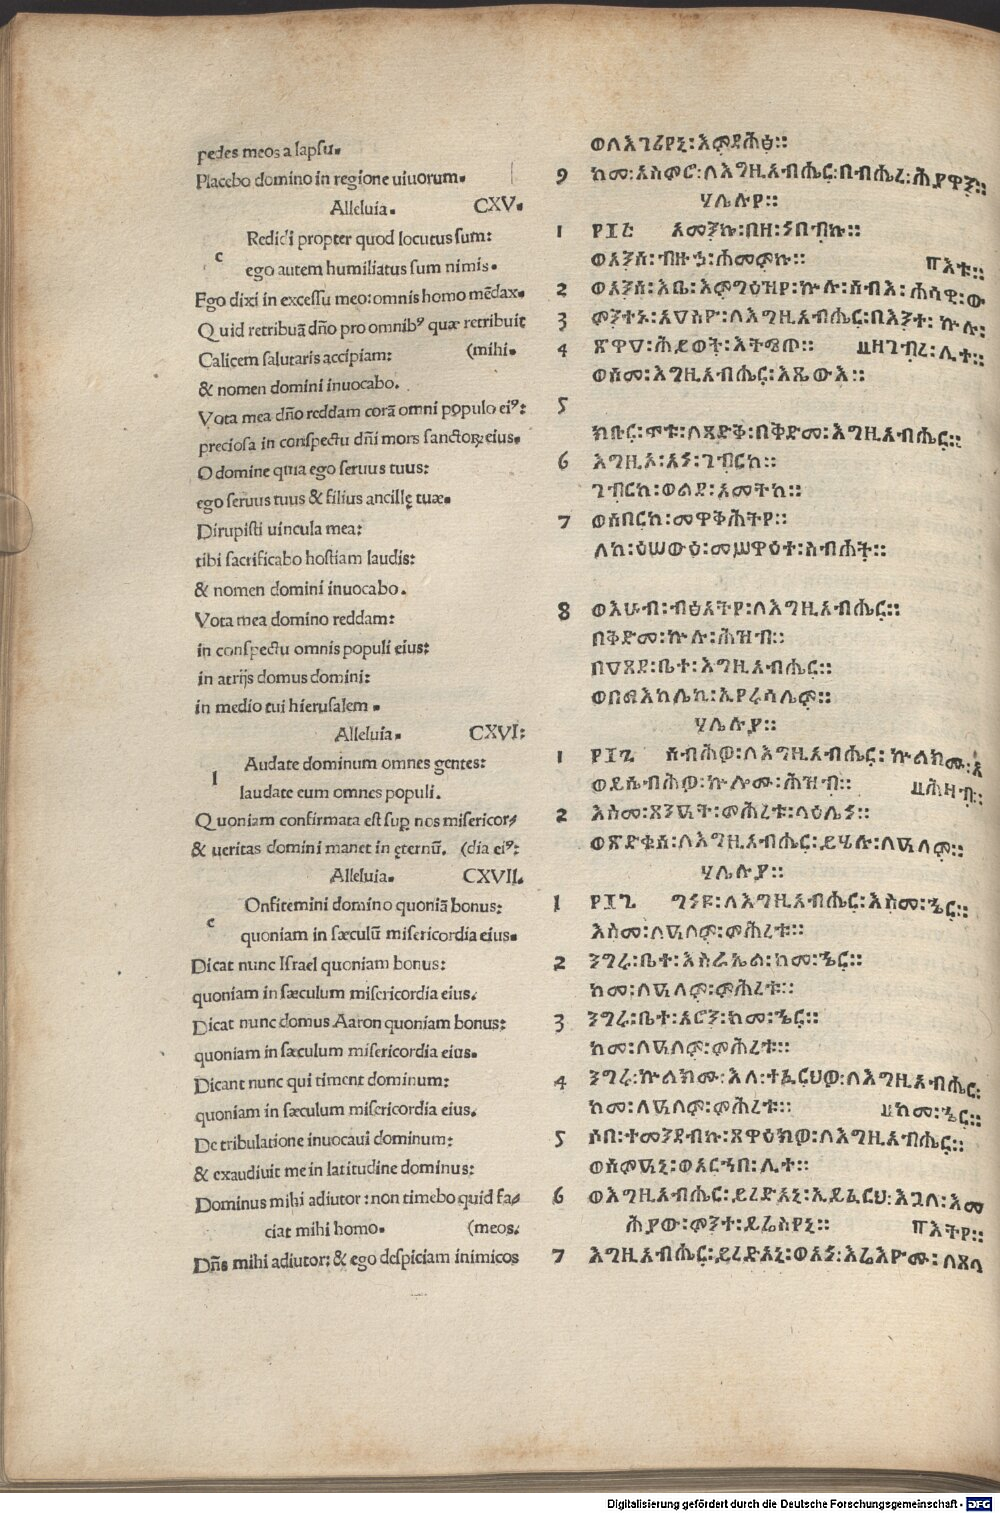 pedes meos a lapsu.
Placebo domino in regione uiuorum.
Alleluia. CXV.
c Redidi propter quod locutus sum:
ego autem humiliatus sum nimis.
Ego dixi in excessu meo: omnis homo mēdax.
Quid retribuā dño pro omnibꝰ quæ retribuit
Calicem salutaris accipiam: (mihi.
& nomen domini inuocabo.
Vota mea dño reddam corā omni populo eiꝰ:
preciosa in conspectu dñi mors sanctoꝝ eius.
O domine quia ego seruus tuus:
ego seruus tuus & filius ancillę tuæ.
Dirupisti uincula mea:
tibi sacrificabo hostiam laudis:
& nomen domini inuocabo.
Vota mea domino reddam:
in conspectu omnis populi eius:
in atrijs domus domini:
in medio tui hierusalem.
Alleluia. CXVI:
l Audate dominum omnes gentes:
laudate eum omnes populi.
Quoniam confirmata est sup nos misericor/
& ueritas domini manet in ęternū. (dia eiꝰ:
Alleluia. CXVII.
c Onfitemini domino quoniā bonus:
quoniam in sæculū misericordia eius.
Dicat nunc Israel quoniam bonus:
quoniam in sæculum misericordia eius.
Dicat nunc domus Aaron quoniam bonus:
quoniam in sæculum misericordia eius.
Dicant nunc qui timent dominum:
quoniam in sæculum misericordia eius.
De tribulatione inuocaui dominum:
& exaudiuit me in latitudine dominus:
Dominus mihi adiutor: non timebo quid fa/
ciat mihi homo. (meos.
Dñs mihi adiutor: & ego despiciam inimicos
ወለእገሪየኒ፡እምደሕፅ።
9 ከመ፡አስምሮ፡ለእግዚአብሔር፡በብሔረ፡ሕያዋን።
ሃሌሉያ።
1 ፻፲፭ አመንኩ፡በዘ፡ነበብኩ።
ወአንሰ፡ብዙኅ፡ሐመምኩ። እቱ።
2 ወአንሰ፡እቤ፡እምግዕዝየ፡ኵሉ፡ሰብእ፡ሐሳዊ፡ው
3 ምንተኑ፡አዐስዮ፡ለእግዚአብሔር፡በእንተ፡ኵሉ፡
4 ጽዋዐ፡ሕይወት፡እትሜጦ። ዘገብረ፡ሊተ።
ወስመ፡እግዚአብሔር፡እጼውእ።
5
ክቡር፡ሞቱ፡ለጻድቅ፡በቅድመ፡እግዚአብሔር።
6 እግዚኦ፡አነ፡ገብርከ።
ገብርከ፡ወልደ፡አመትከ።
7 ወሰበርከ፡መዋቅሕትየ።
ለከ፡እሠውዕ፡መሥዋዕተ፡ስብሐት።
8 ወእሁብ፡ብፅአትየ፡ለእግዚአብሔር።
በቅድመ፡ኵሉ፡ሕዝብ።
በዐጸደ፡ቤተ፡እግዚአብሔር።
ወበማእከሌኪ፡ኢየሩሳሌም።
ሃሌሉያ።
1 ፻፲፮ ሰብሕዎ፡ለእግዚአብሔር፡ኵልክሙ፡አ
ወይሴብሕዎ፡ኵሎሙ፡ሕዝብ። ሕዛብ።
2 እስመ፡ጸንዐት፡ምሕረቱ፡ላዕሌነ።
ወጽድቁሰ፡ለእግዚአብሔር፡ይሄሉ፡ለዓለም።
ሃሌሉያ።
1 ፻፲፯ ግነዩ፡ለእግዚአብሔር፡እስመ፡ኄር።
እስመ፡ለዓለም፡ምሕረቱ።
2 ንግሩ፡ቤተ፡እስራኤል፡ከመ፡ኄር።
ከመ፡ለዓለም፡ምሕረቱ።
3 ንግሩ፡ቤተ፡አሮን፡ከመ፡ኄር።
ከመ፡ለዓለም፡ምሕረቱ።
4 ንግሩ፡ኵልክሙ፡እለ፡ተፈርህዎ፡ለእግዚአብሔር፡
ከመ፡ለዓለም፡ምሕረቱ። ከመ፡ኄር።
5 ሶበ፡ተመንደብኩ፡ጸዋዕክዎ፡ለእግዚአብሔር።
ወሰምዐኒ፡ወአርኀበ፡ሊተ።
6 ወእግዚአብሔር፡ይረድአኒ፡ኢይፈርህ፡እጓለ፡እመ
ሕያው፡ምንተ፡ይሬስየኒ። እትየ።
7 እግዚአብሔር፡ይረድአኒ፡ወአነ፡እሬእዮሙ፡ለጸላ
Digitalisierung gefördert durch die Deutsche Forschungsgemeinschaft - DFG